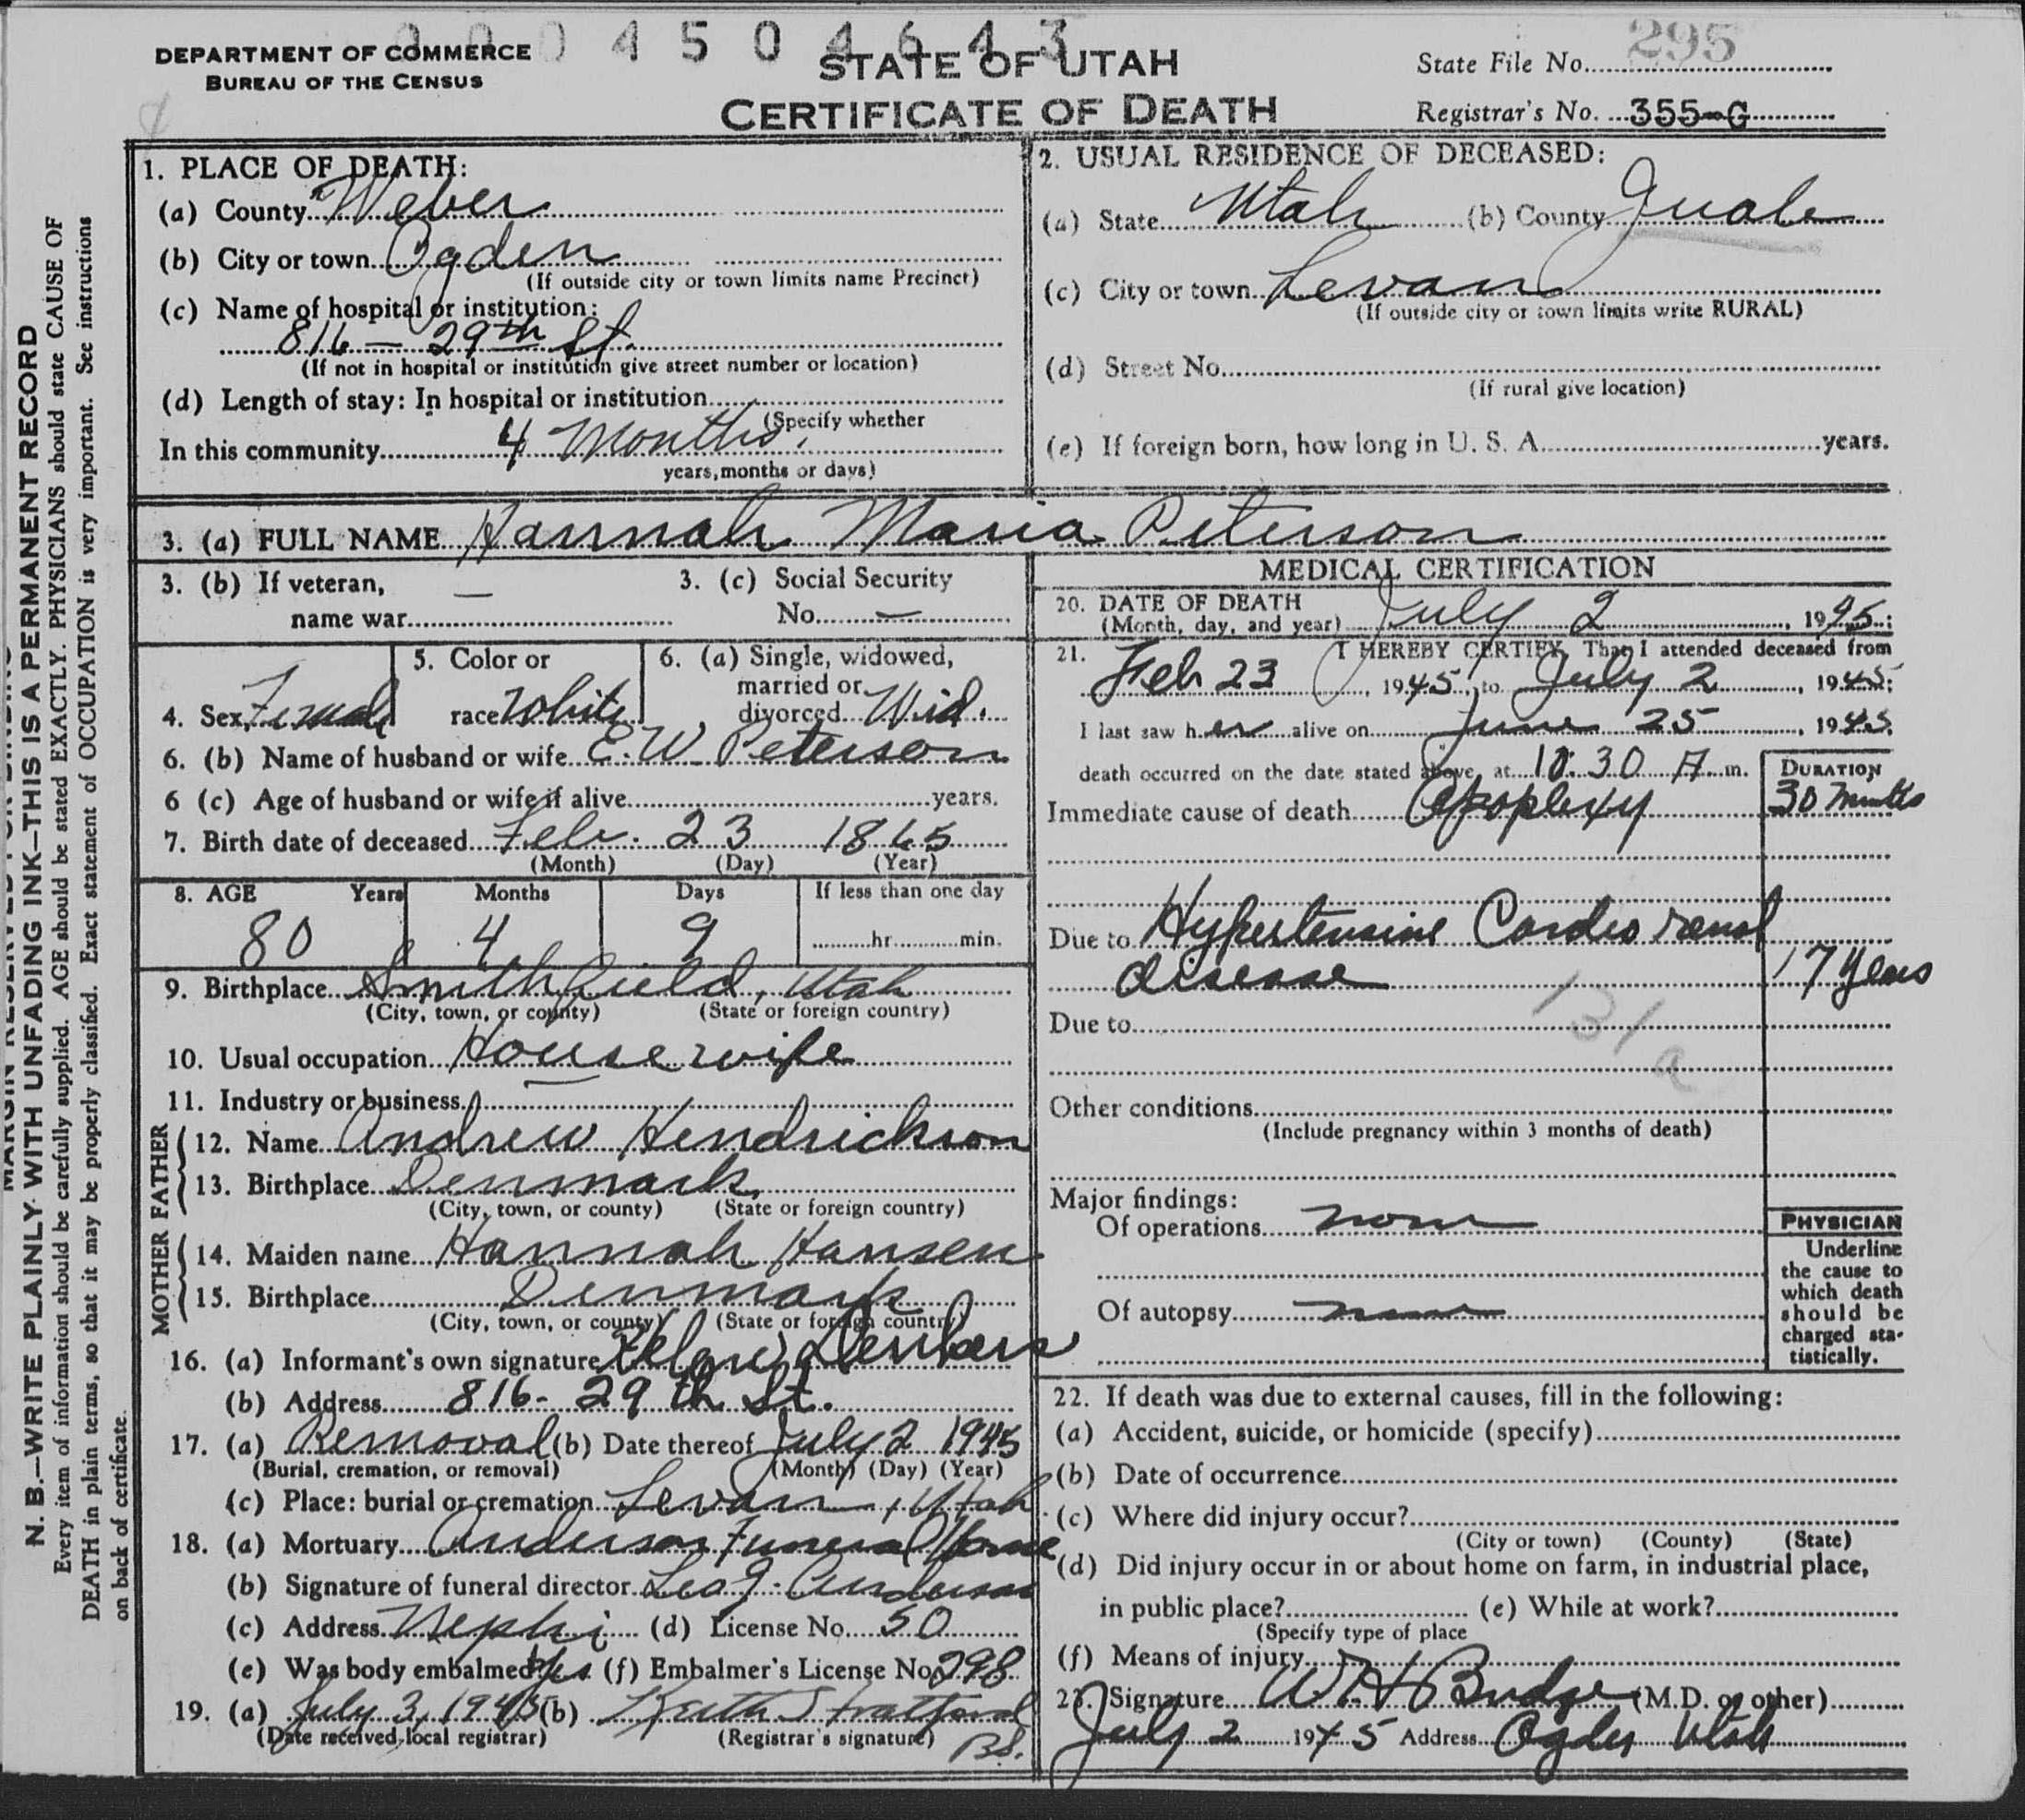 0004504643
DEPARTMENT OF COMMERCE
BUREAU OF THE CENSUS
STATE OF UTAH
CERTIFICATE OF DEATH
State File No. 295
Registrar's No. 355-G
MARGIN RESERVED FOR BINDING
N. B.—WRITE PLAINLY WITH UNFADING INK—THIS IS A PERMANENT RECORD
Every item of information should be carefully supplied. AGE should be stated EXACTLY. PHYSICIANS should state CAUSE OF
DEATH in plain terms, so that it may be properly classified. Exact statement of OCCUPATION is very important. See instructions
on back of certificate.
1. PLACE OF DEATH:
(a) County Weber
(b) City or town Ogden
(If outside city or town limits name Precinct)
(c) Name of hospital or institution:
816 - 29th St.
(If not in hospital or institution give street number or location)
(d) Length of stay: In hospital or institution
(Specify whether
In this community 4 Months
years, months or days)
2. USUAL RESIDENCE OF DECEASED:
(a) State Utah (b) County Juab
(c) City or town Levan
(If outside city or town limits write RURAL)
(d) Street No.
(If rural give location)
(e) If foreign born, how long in U. S. A. years.
3. (a) FULL NAME Hannah Maria Peterson
3. (b) If veteran, name war —
3. (c) Social Security No. —
4. Sex Female
5. Color or race White
6. (a) Single, widowed, married or divorced Wid.
6. (b) Name of husband or wife E. W. Peterson
6 (c) Age of husband or wife if alive years.
7. Birth date of deceased Feb. 23 1865
(Month) (Day) (Year)
8. AGE Years Months Days If less than one day
80 4 9 hr. min.
9. Birthplace Smithfield, Utah
(City, town, or county) (State or foreign country)
10. Usual occupation Housewife
11. Industry or business
FATHER
12. Name Andrew Hendrickson
13. Birthplace Denmark
(City, town, or county) (State or foreign country)
MOTHER
14. Maiden name Hannah Hansen
15. Birthplace Denmark
(City, town, or county) (State or foreign country)
16. (a) Informant's own signature
(b) Address 816 - 29th St.
17. (a) Removal (b) Date thereof July 2 1945
(Burial, cremation, or removal) (Month) (Day) (Year)
(c) Place: burial or cremation Levan, Utah
18. (a) Mortuary Anderson Funeral Home
(b) Signature of funeral director Leo J. Anderson
(c) Address Nephi (d) License No. 50
(e) Was body embalmed? Yes (f) Embalmer's License No. 298
19. (a) July 3, 1945 (b) Keith Stratford
(Date received local registrar) (Registrar's signature)
MEDICAL CERTIFICATION
20. DATE OF DEATH
(Month, day, and year) July 2, 1945;
21. I HEREBY CERTIFY, That I attended deceased from
Feb 23, 1945, to July 2, 1945;
I last saw her alive on June 25, 1945,
death occurred on the date stated above, at 10:30 A m.
DURATION
Immediate cause of death Apoplexy 30 minutes
Due to Hypertensive Cardio renal
disease 17 years
Due to
131a
Other conditions
(Include pregnancy within 3 months of death)
Major findings:
Of operations none
Of autopsy none
PHYSICIAN
Underline
the cause to
which death
should be
charged sta-
tistically.
22. If death was due to external causes, fill in the following:
(a) Accident, suicide, or homicide (specify)
(b) Date of occurrence
(c) Where did injury occur?
(City or town) (County) (State)
(d) Did injury occur in or about home on farm, in industrial place,
in public place? (e) While at work?
(Specify type of place
(f) Means of injury
23. Signature W H Budge (M.D. or other)
July 2 1945 Address Ogden Utah